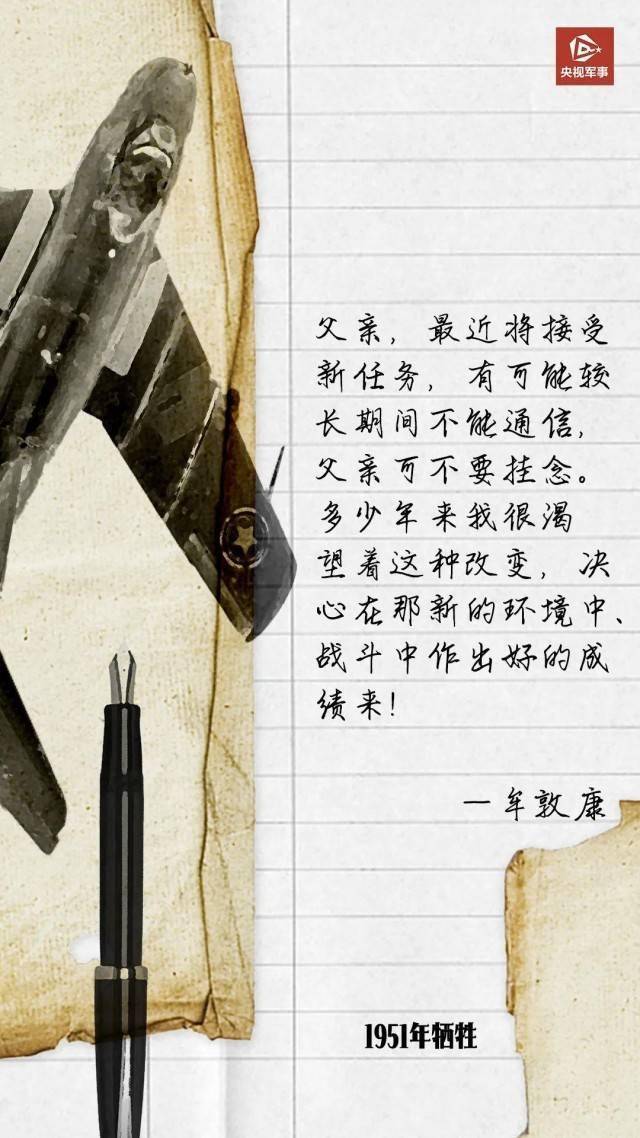 央视军事
父亲，最近将接受
新任务，有可能较
长期间不能通信，
父亲可不要挂念。
多少年来我很渴
望着这种改变，决
心在那新的环境中、
战斗中作出好的成
绩来！
—牟敦康
1951年牺牲